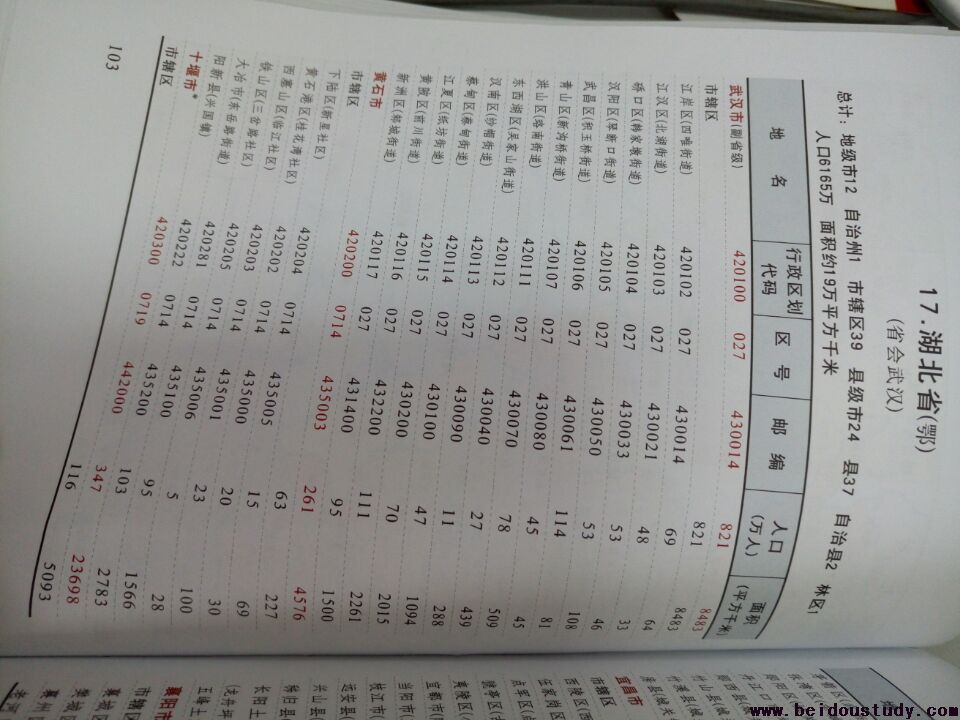 17.湖北省(鄂)
(省会武汉)
总计：地级市12 自治州1 市辖区39 县级市24 县37 自治县2 林区1
人口6165万 面积约19万平方千米
地 名 行政区划代码 区 号 邮 编 人口(万人) 面积(平方千米)
武汉市(副省级) 420100 027 430014 821 8483
市辖区 821 8483
江岸区(四唯街道) 420102 027 430014 69 64
江汉区(北湖街道) 420103 027 430021 48 33
硚口区(韩家墩街道) 420104 027 430033 53 46
汉阳区(翠新口街道) 420105 027 430050 53 108
武昌区(积玉桥街道) 420106 027 430061 114 81
青山区(新沟桥街道) 420107 027 430080 45 45
洪山区(珞南街道) 420111 027 430070 78 509
东西湖区(吴家山街道) 420112 027 430040 27 439
汉南区(纱帽街道) 420113 027 430090 11 288
蔡甸区(蔡甸街道) 420114 027 430100 47 1094
江夏区(纸坊街道) 420115 027 430200 70 2015
黄陂区(前川街道) 420116 027 432200 111 2261
新洲区(邾城街道) 420117 027 431400 95 1500
黄石市 420200 0714 435003 261 4576
市辖区 63 227
下陆区(新星社区) 420204 0714 435005 15 69
黄石港区(桂花湾社区) 420202 0714 435000 20 30
西塞山区(临江社区) 420203 0714 435001 23 100
铁山区(三岔路社区) 420205 0714 435006 5 28
大冶市(东岳路街道) 420281 0714 435100 95 1566
阳新县(兴国镇) 420222 0714 435200 103 2783
十堰市* 420300 0719 442000 347 23698
市辖区 116 5093
103
宜昌市
市辖区
兴山县
秭归县
长阳土
五峰土
襄阳市
市辖区
襄城区
樊城区
襄州区
www.beidoustudy.com